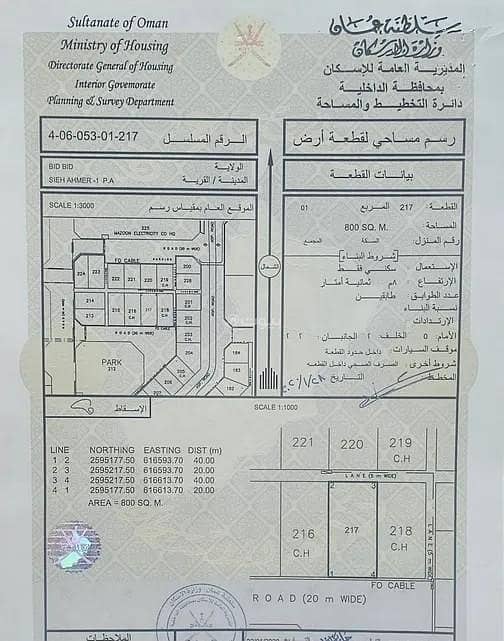 Sultanate of Oman
Ministry of Housing
Directorate General of Housing
Interior Govemorate
Planning & Survey Department
سلطنة عمان
وزارة الإسكان
المديرية العامة للإسكان
بمحافظة الداخلية
دائرة التخطيط والمساحة
4-06-053-01-217
الرقم المسلسل
رسم مساحي لقطعة أرض
BID BID
الولاية
SIEH AHMER -1 P.A
المدينة / القرية
بيانات القطعة
SCALE 1:3000
الموقع العام بمقياس رسم
القطعة : 217 المربع 01
المساحة : 800 SQ. M.
رقم المنزل : السكة المجمع
شروط البناء
الاستعمال : سكني فقط
الارتفاع : ٨م ثمانية أمتار
عدد الطوابق : طابقين
نسبة البناء :
الإرتدادات :
الأمام ٥ الخلف ٢ الجانبان ٢٢
موقف السيارات : داخل حدود القطعة
شروط أخرى : الصرف الصحي داخل القطعة
المخطط
التاريخ
الشمال
MAZOON ELECTRICITY CO HQ
ROAD (20m WIDE)
PARKING
FO CABLE
224
223
200
214
213
218
201
202
203
204
205
207
184
183
182
ROAD (20m WIDE)
PARK
212
الإسقاط
SCALE 1:1000
LINE NORTHING EASTING DIST (m)
1 2 2595177.50 616593.70 40.00
2 3 2595217.50 616593.70 20.00
3 4 2595217.50 616613.70 40.00
4 1 2595177.50 616613.70 20.00
AREA = 800 SQ. M.
221
220
219
C.H
LANE (5 m WIDE)
2
3
216
C.H
217
218
C.H
LANE (5
1
4
FO CABLE
ROAD (20 m WIDE)
الملاحظات